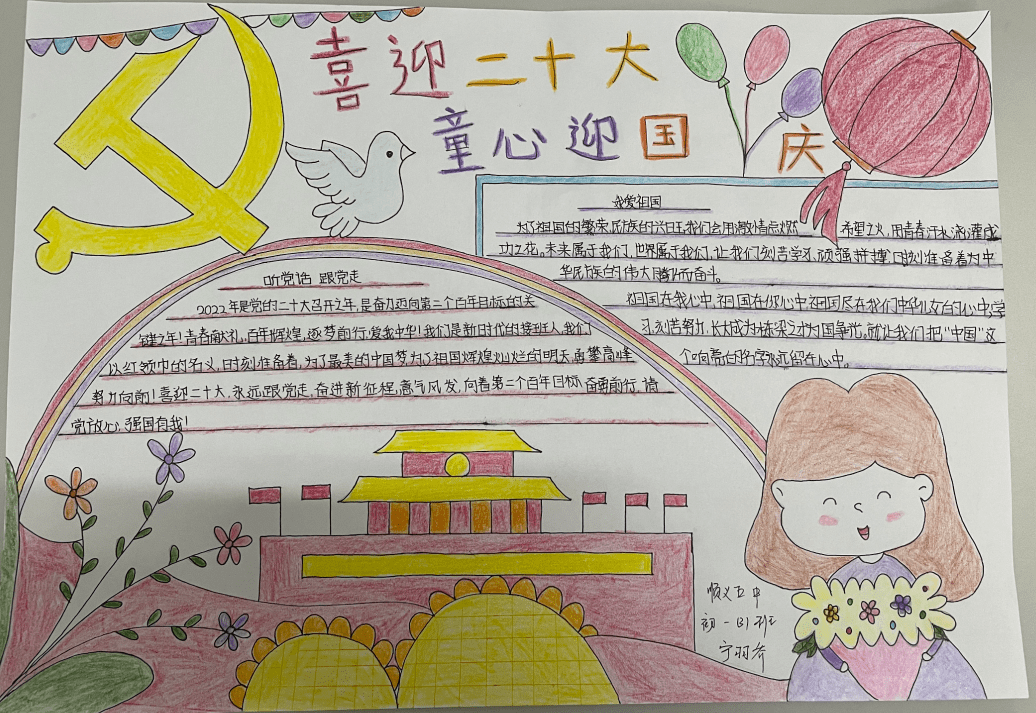 喜迎二十大
童心迎国庆
我爱祖国
为了祖国的繁荣民族的兴旺我们会用激情点燃希望之火,用青春汗水浇灌成
功之花。未来属于我们,世界属于我们,让我们刻苦学习,顽强拼搏时刻准备着为中
华民族的伟大腾飞而奋斗。
祖国在我心中,祖国在你心中祖国尽在我们中华儿女的心中,学
习刻苦努力,长大成为栋梁之才为国争光。就让我们把“中国”这
个响亮的名字永远留在心中。
听党话 跟党走
2022年是党的二十大召开之年,是奋力迈向第二个百年目标的关
键之年!青春献礼,百年辉煌,逐梦前行,爱我中华!我们是新时代的接班人,我们
以红领巾的名义,时刻准备着,为了最美的中国梦为了祖国辉煌灿烂的明天,勇攀高峰
努力向前!喜迎二十大,永远跟党走,奋进新征程,意气风发,向着第二个百年目标,奋勇前行,请
党放心,强国有我!
顺义五中
初一13班
宁羽